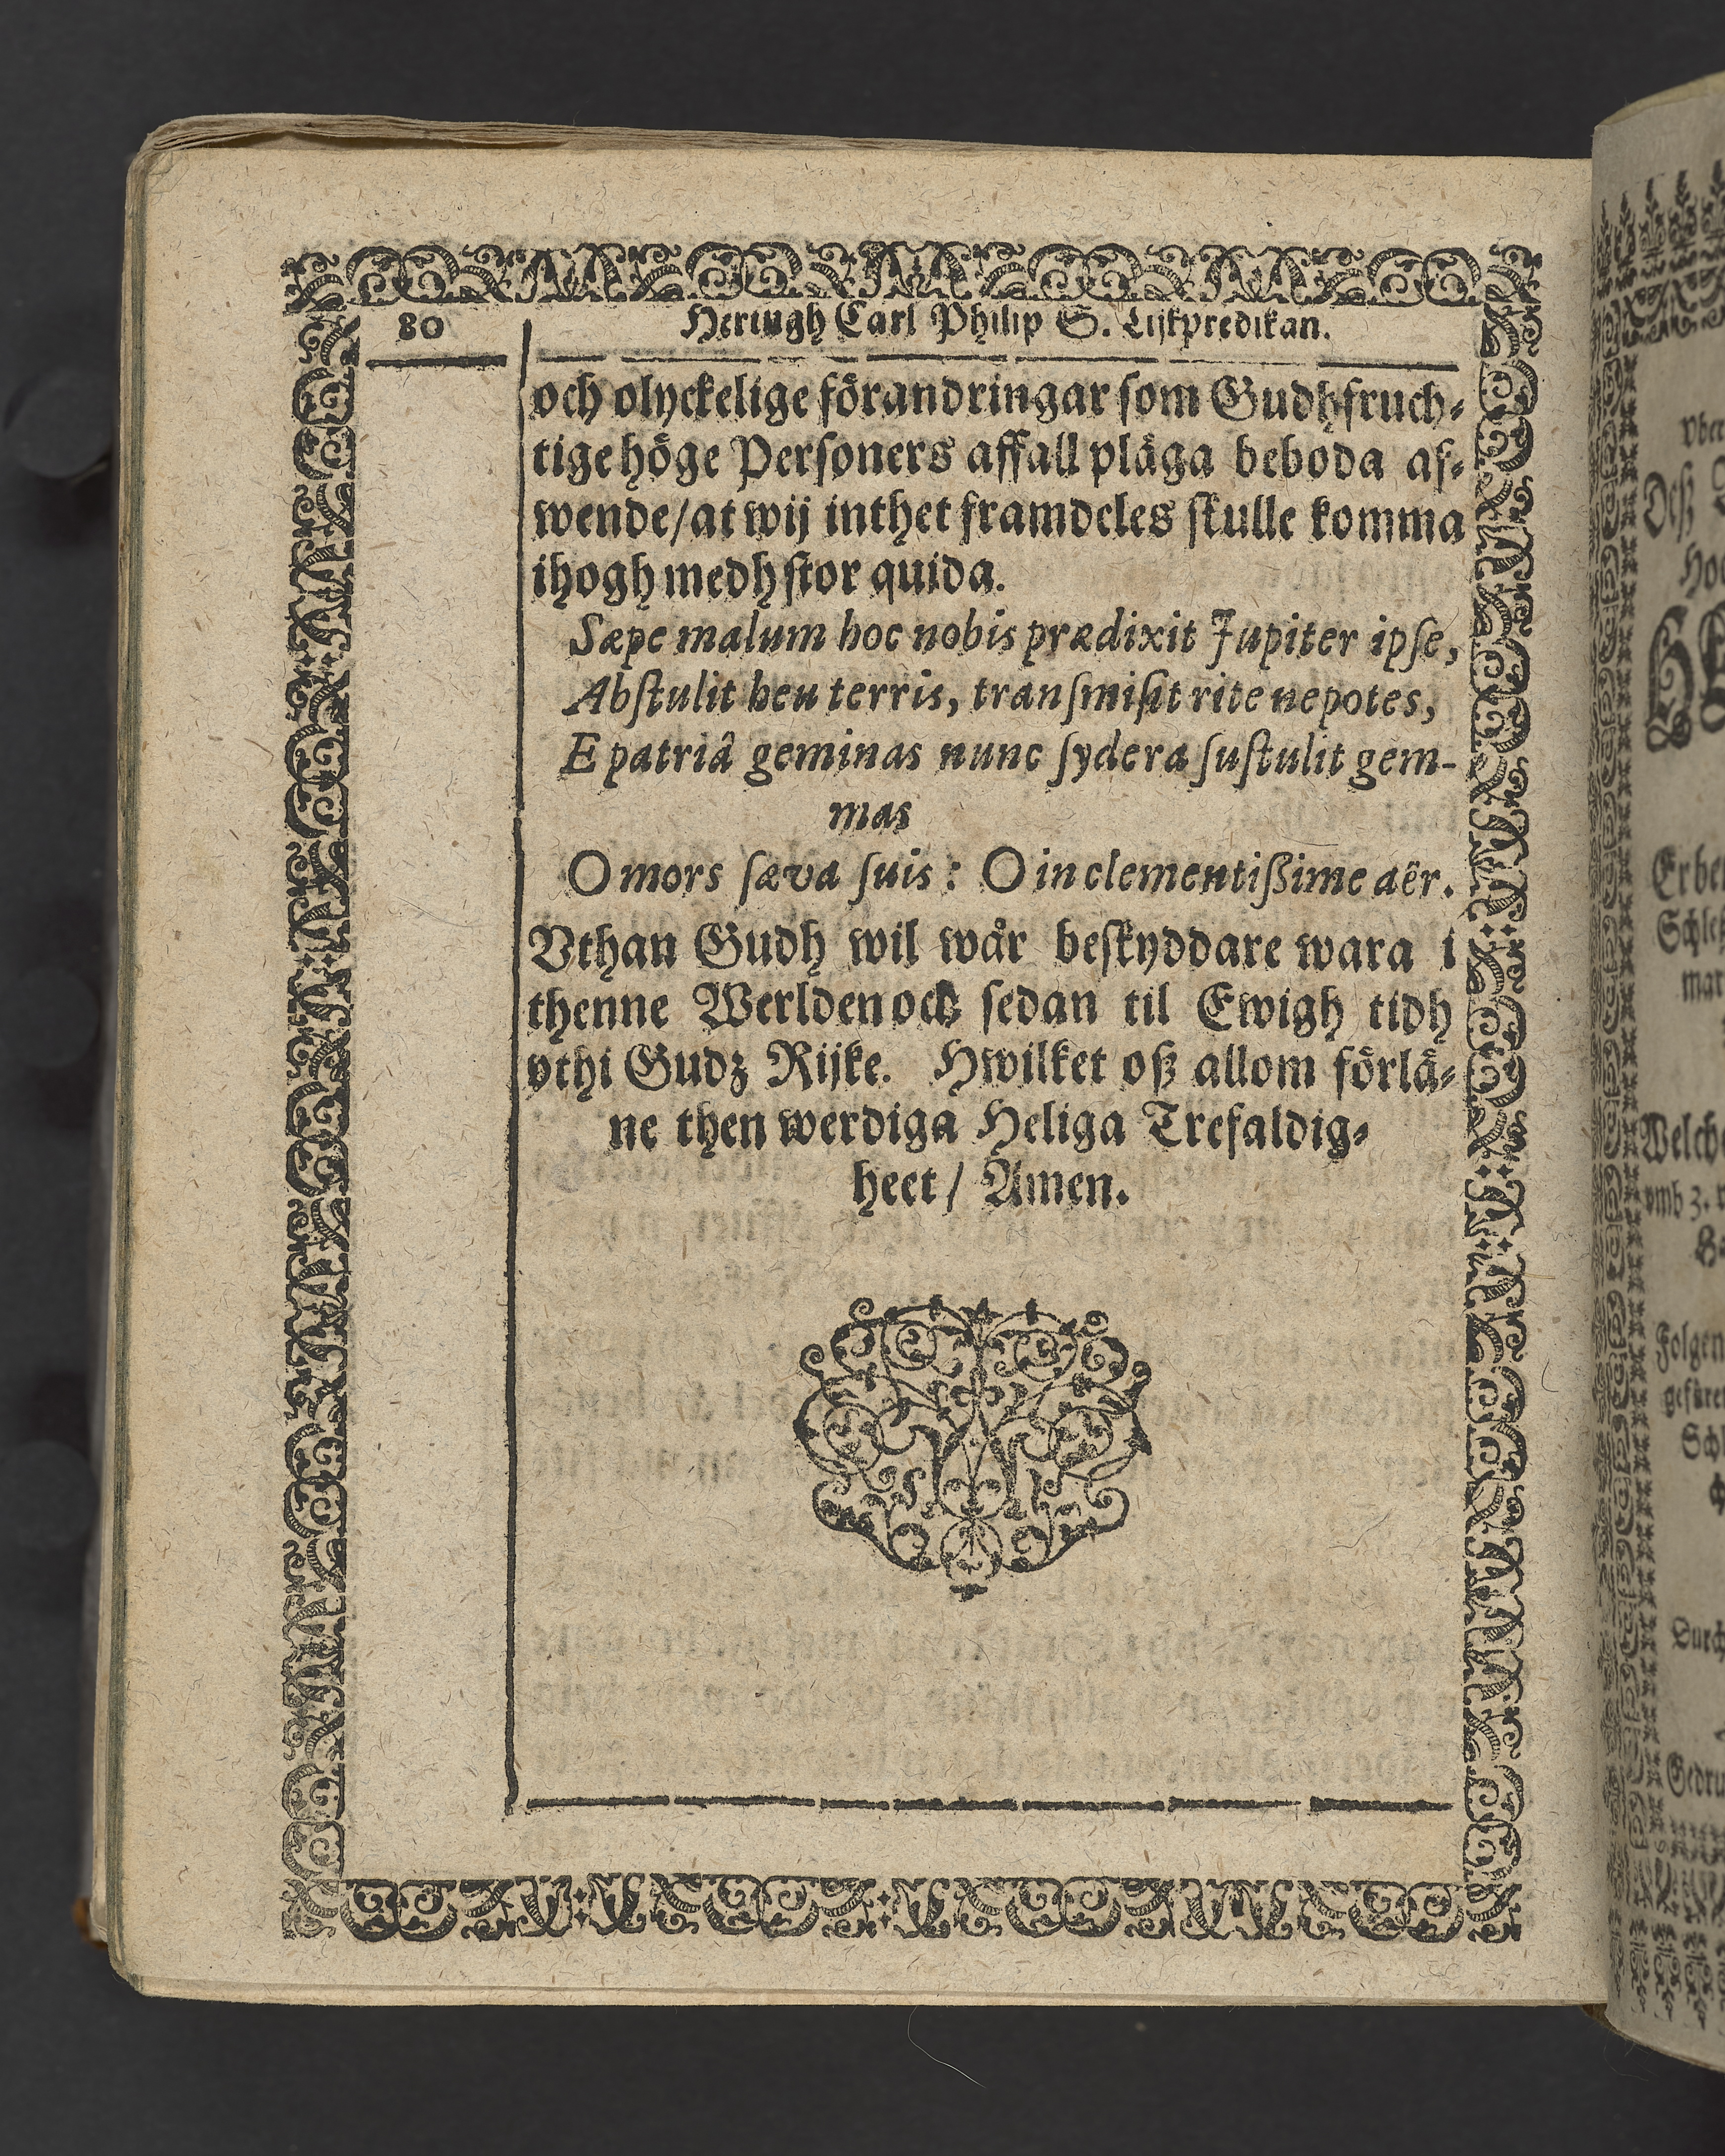 80
Hertugh Carl Philip S. Lijkpredikan.
och olyckelige förandringar som Gudhfruch⸗
tige höge Personers affall pläga beboda af⸗
wende/ at wij inthet framdeles skulle komma
ihogh medh stor quida.
Sæpe malum hoc nobis prædixit Jupiter ipſe,
Abſtulit heu terris, tranſmiſit rite nepotes,
E patriâ geminas nunc ſydera ſuſtulit gem-
mas
O mors ſæva ſuis: O inclementißime aër.
Vthan Gudh wil wår beskyddare wara i
thenne Werlden och sedan til Ewigh tidh
vthi Gudz Rijke. Hwilket oß allom förlä⸗
ne then werdiga Heliga Trefaldig⸗
heet/ Amen.
Erbe
Schleß
mar
Welche
vmb 3.
Folgen
Schl
Durch
Gedru